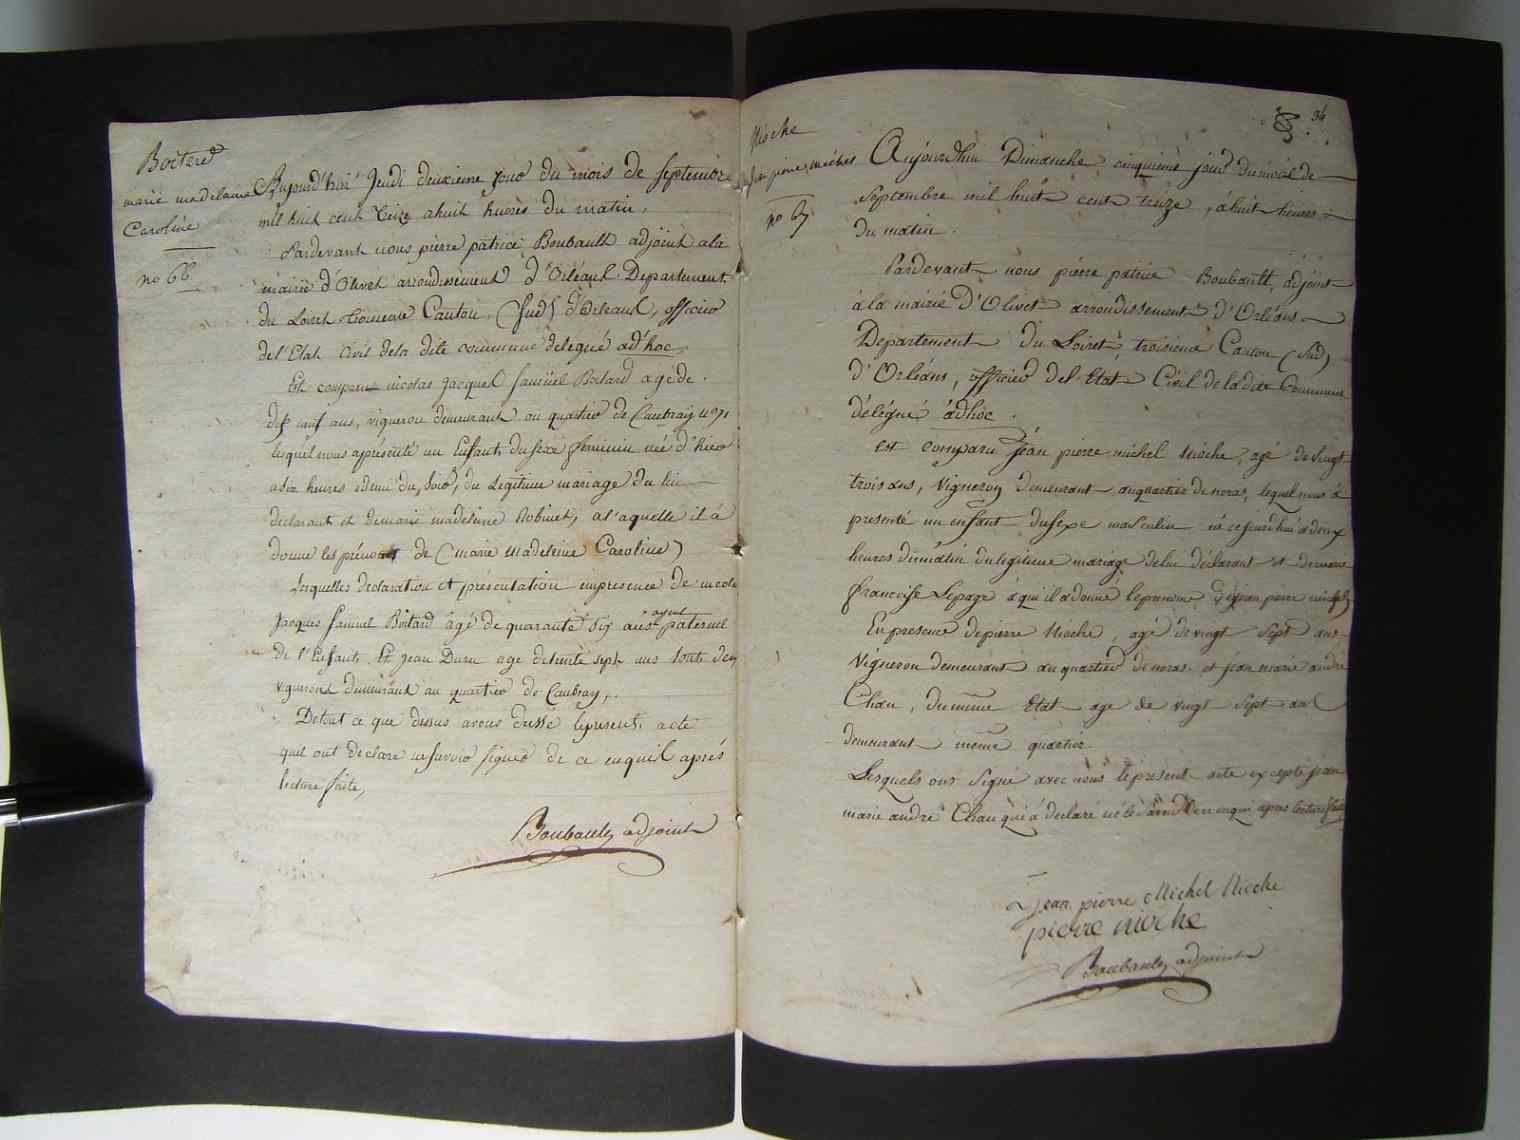 Boitard
marie madelaine
Caroline
no 66
Aujourd'hui Jeudi deuxieme jour du mois de septembre
mil huit cent treize a huit heures du matin,
Pardevant nous pierre patrice Boubault adjoint a la
mairie d'Olivet arrondissement d'Orléans Departement
du Loiret troisieme Canton (Sud) d'Orleans, officier
de l'Etat Civil de la dite commune délégué ad'hoc,
Est comparu nicolas Jacques Samuel Boitard age de
dix neuf ans, vigneron demeurant au quartier de Caubray
lequel nous a présenté un Enfant du sexe feminin née d'hier
a dix heures et demie du soir, du Legitime mariage du lui
declarant et de marie madeleine Robinet, a l'aquelle il à
donne les prénoms de (marie Madeleine Caroline)
Lesquelles declaration et présentation en presence de nicolas
Jacques Samuel Boitard âgé de quarante six ans ayeul paternel
de l'Enfant. Et Jean Duru age de trente sept ans touts deux
vignerons demeurant au quartier de Caubray,.
De tout ce que dessus avons dressé le present acte
quil ont declare ne savoir signer de ce enquil aprés
lecture faite,
Boubault adjoint
Nioche
Jean pierre michel
no 67
34
Aujourd'hui Dimanche cinquieme jour du mois de
Septembre mil huit cent treize, à huit heures
du matin.
Pardevant nous pierre patrice Boubault, adjoint
à la mairie D'Olivet arrondissement D'Orléans
Departement du Loiret, troisieme Canton (Sud)
d'Orléans, officier del'Etat Civil de la dite Commune
délégué ad'hoc.
est comparu jean pierre michel Nioche, agé de vingt
trois ans, Vigneron demeurant au quartier de noras, lequel nous à
presenté un enfant du sexe masculin né cejourd'hui a deux
heures du matin du legitime mariage de lui déclarant et de marie
françoise Lepage à qui il a donné le prenome de jean pierre michel
En presence de pierre Nioche, agé de vingt sept ans
Vigneron demeurant au quartier de noras. et jean marie andré
Chau, du même Etat age de vingt sept ans
demeurant même quartier.
Lesquels ont signé avec nous le present acte excepté jean
marie andré Chau qui à declaré ne le savoir de ce enqui apres lecture faite
jean pierre Michel Nioche
pierre nioche
Boubault adjoint